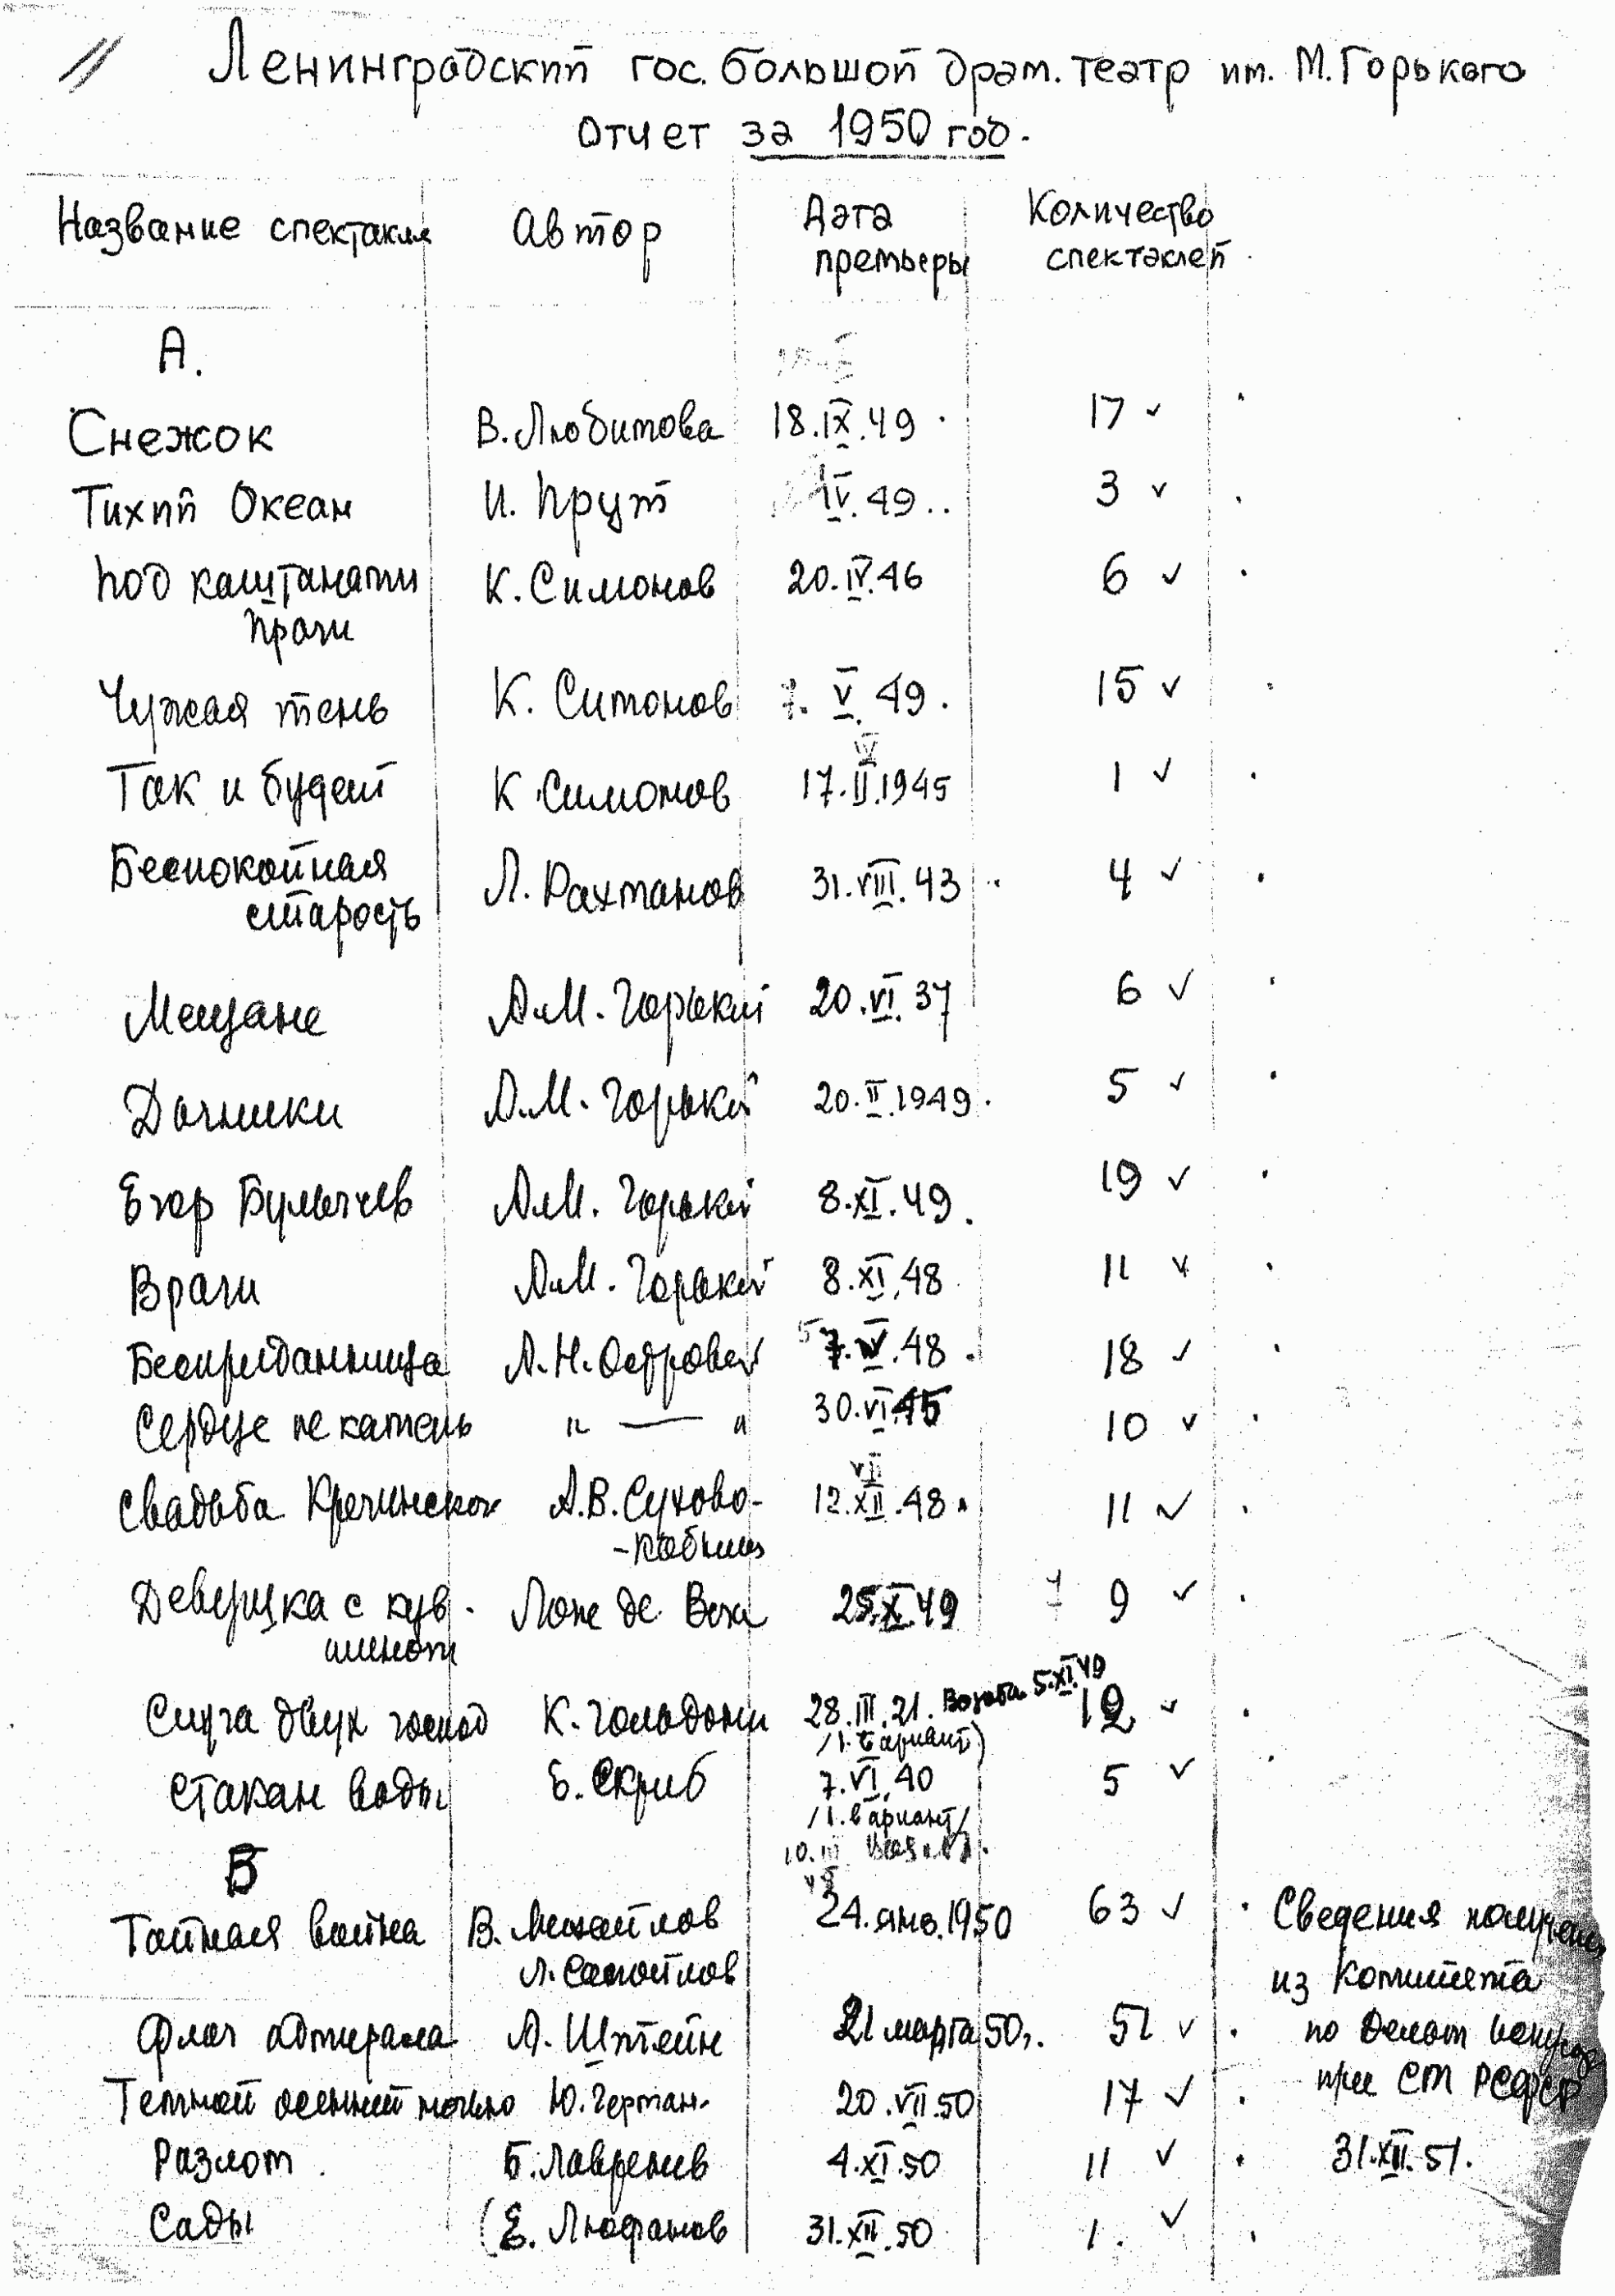 Ленинградский гос. большой драм. театр им. М. Горького
Отчет за 1950 год.
Название спектакля Автор Дата премьеры Количество спектаклей
А.
Снежок В. Любимова 18.IX.49 17 ✓
Тихий Океан И. Прут IV.49.. 3 ✓
Под каштанами К. Симонов 20.IV.46 6 ✓
Праги
Чужая тень К. Симонов 7. V. 49. 15 ✓
Так и будет К. Симонов 17.II.1945 1 ✓
Беспокойная
старость Л. Рахманов 31.VIII.43 4 ✓
Мещане А.М. Горький 20.VI.37 6 ✓
Дачники А.М. Горький 20.II.1949. 5 ✓
Егор Булычев А.М. Горький 8.XI.49. 19 ✓
Враги А.М. Горький 8.XI.48 11 ✓
Бесприданница А.Н. Островский .48. 18 ✓
Сердце не камень " — " 30.VI.45 10 ✓
VII
Свадьба Кречинского А.В. Сухово- 12.XII.48. 11 ✓
-Кобылин
Девушка с кув- Лопе де Вега 25.X.49 9 ✓
шином
Слуга двух господ К. Гольдони 28.III.21. Возоб. 5.XI.49 12 ✓
/1. вариант)
Стакан воды Е. Скриб 7.VI.40 5 ✓
/1. вариант/
10.III
Б
Тайная война В. Михайлов 24. янв. 1950 63 ✓ Сведения получены
Л. Самойлов из Комитета
Флаг адмирала А. Штейн 21 марта 50г. 51 ✓ по делам искус
Темной осенней ночью Ю. Герман. 20.VII.50 17 ✓ при СМ РСФСР
Разлом Б. Лавренев 4.XI.50 11 ✓ 31.XII.51.
Сады (Е. Люфанов 31.XII.50 1. ✓